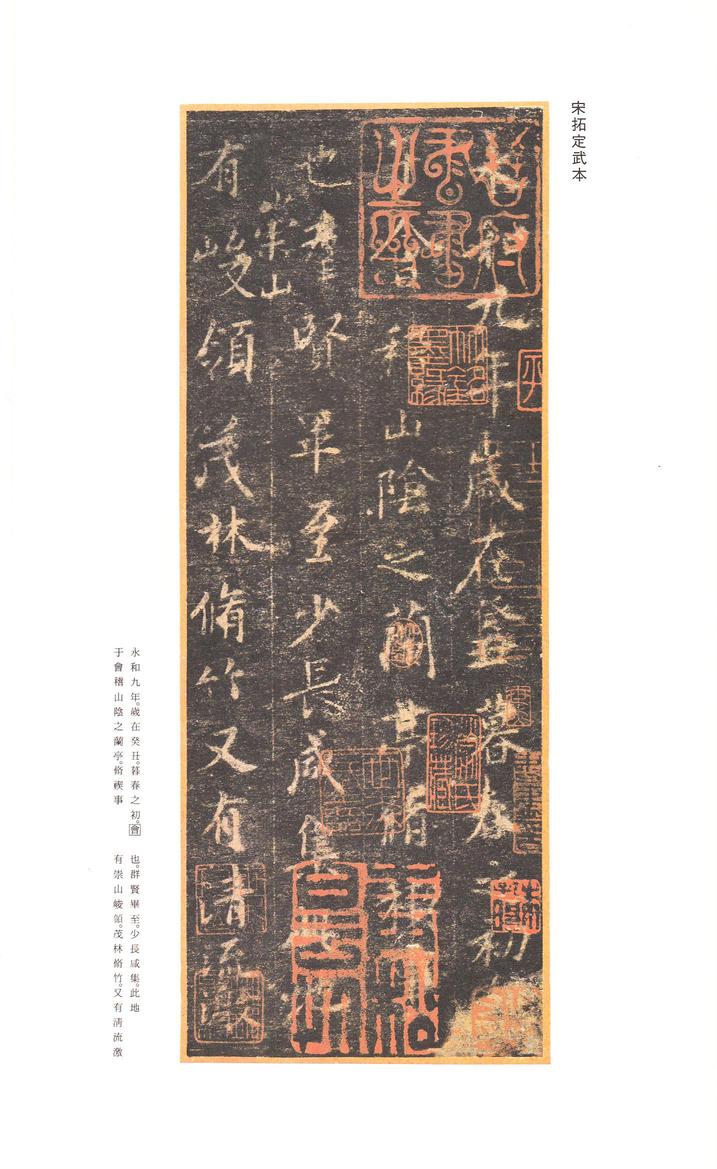 宋拓定武本
永和九年歲在癸丑暮春之初
會稽山陰之蘭亭脩
也羣賢畢至少長咸集
有崇山峻領茂林脩竹又有清流激
永和九年。歲在癸丑。暮春之初。會
于會稽山陰之蘭亭。脩禊事
也。群賢畢至。少長咸集。此地
有崇山峻領。茂林脩竹。又有清流激